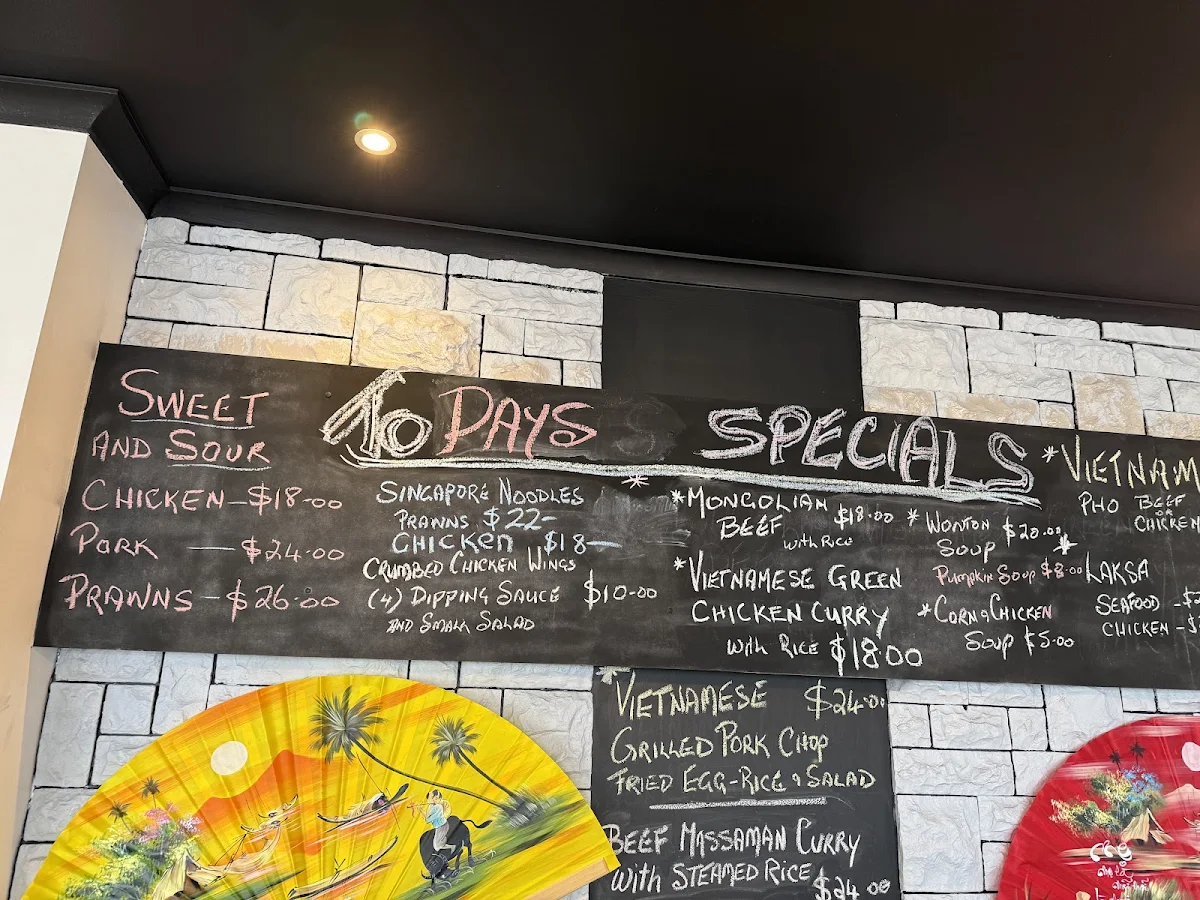 SWEET
AND SOUR
CHICKEN - $18-00
PORK - $24-00
PRAWNS - $26-00
To DAYS SPECIALS
SINGAPORE NOODLES
PRAWNS $22-
CHICKEN $18-
CRUMBED CHICKEN WINGS
(4) DIPPING SAUCE $10-00
AND SMALL SALAD
*MONGOLIAN
BEEF $18-00
with RICE
*VIETNAMESE GREEN
CHICKEN CURRY
with RICE $18-00
*WONTON $20-00
SOUP
PUMPKIN SOUP $8-00
*CORN & CHICKEN
SOUP $5-00
*VIETNAM
PHO BEEF
OR
CHICKEN
*LAKSA
SEAFOOD - $2
CHICKEN -
*VIETNAMESE $24-00
GRILLED PORK CHOP
FRIED EGG-RICE & SALAD
BEEF MASSAMAN CURRY
with STEAMED RICE $24-00